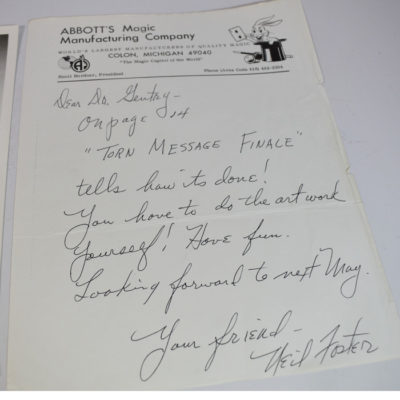 ABBOTT'S Magic
Manufacturing Company
WORLD'S LARGEST MANUFACTURERS OF QUALITY MAGIC
COLON, MICHIGAN 49040
"The Magic Capitol of the World"
Recil Bordner, President
Phone (Area Code 616)
Dear Dr. Gentry-
On page 14
"TORN MESSAGE FINALE"
tells how its done!
You have to do the art work
Yourself! Have fun.
Looking forward to next May.
Your friend-
Neil Foster